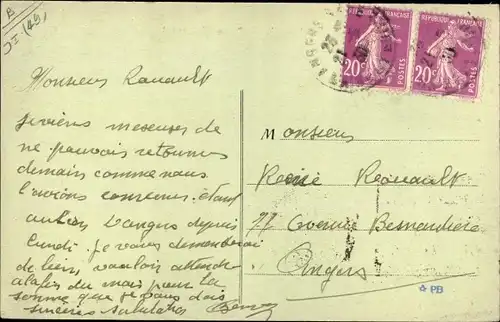 Monsieur Rouault
je viens m'excuser de
ne pouvoir retourner
demain comme nous
l'avions convenu étant
d'Angers depuis
lundi. je vous demanderai
de bien vouloir attendre
à la fin du mois pour la
somme que je vous dois
sincères salutations
REPUBLIQUE FRANÇAISE
20c
POSTES
REPUBLIQUE FRANÇAISE
20c
POSTES
ANGERS
Monsieur
René Rouault
77 Avenue Besnardière
Angers
PB